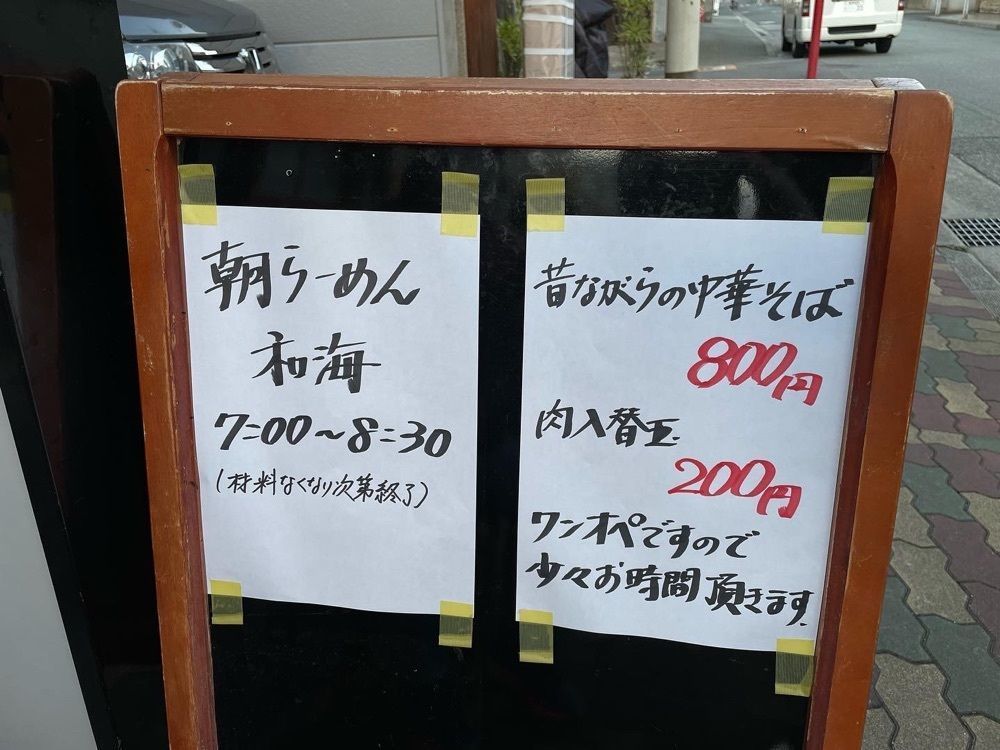 朝らーめん
和海
7:00～8:30
(材料なくなり次第終了)
昔ながらの中華そば
800円
肉入替玉
200円
ワンオペですので
少々お時間頂きます.